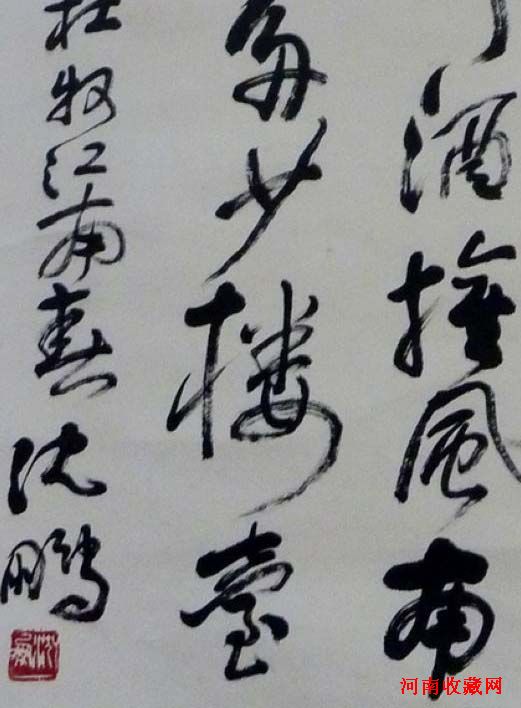 酒旗風南
多少樓臺
杜牧江南春
沈鵬
河南收藏网